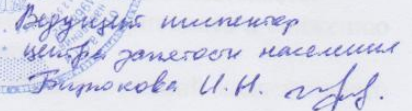 Ведущий инспектор
центра занятости населения
Бирюкова И.Н.